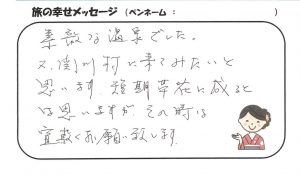 旅の幸せメッセージ（ペンネーム： ）
素敵な温泉でした。
又、佳川村に来てみたいと
思います。短期滞在に成ると
は思いますが、その時は
宜敷くお願い致します。